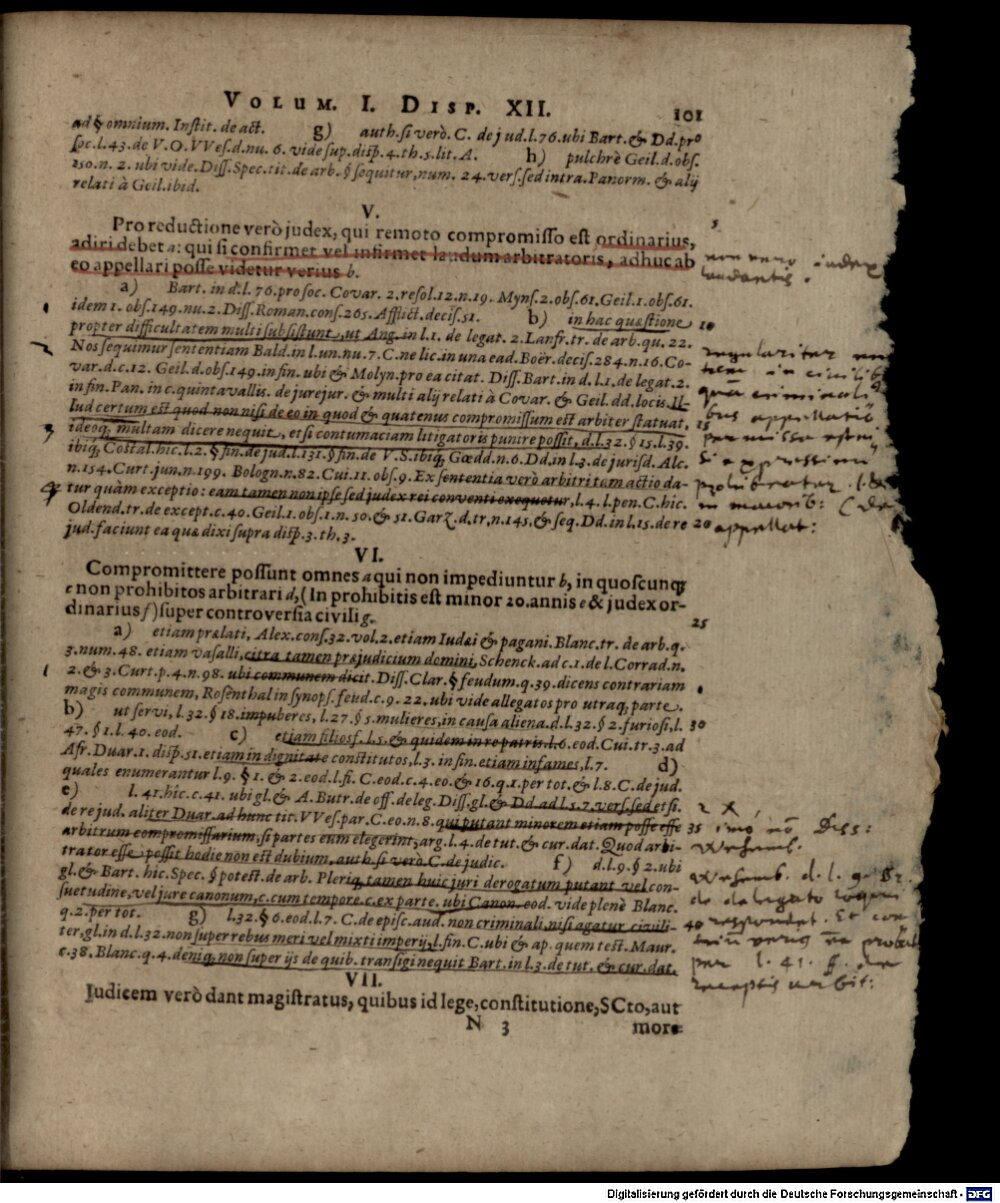 VOLUM. I. DISP. XII. 101
ad § omnium. Instit. de act. g) auth. si verò. C. de jud. l. 76. ubi Bart. & Dd. pro
soc. l. 43. de V. O. VVes. d. nu. 6. vide sup. disp. 4. th. 5. lit. A. h) pulchrè Geil. d. obs.
150. n. 2. ubi vide. Diss. Spec. tit. de arb. § sequitur, num. 24. vers. sed intra. Panorm. & alij
relati à Geil. ibid.
V.
Pro reductione verò judex, qui remoto compromisso est ordinarius,
adiri debet a: qui si confirmet vel infirmet laudum arbitratoris, adhuc ab
eo appellari posse videtur verius b.
a) Bart. in d. l. 76. pro soc. Covar. 2. resol. 12. n. 19. Myns. 2. obs. 61. Geil. 1. obs. 61.
idem 1. obs. 149. nu. 2. Diss. Roman. cons. 265. Afflict. decis. 51. b) in hac quæstione
propter difficultatem multi subsistunt, ut Ang. in l. 1. de legat. 2. Lanfr. tr. de arb. qu. 22.
Nos sequimur sententiam Bald. in l. un. nu. 7. C. ne lic. in una ead. Boër. decis. 284. n. 16. Co-
var. d. c. 12. Geil. d. obs. 149. in fin. ubi & Molyn. pro ea citat. Diss. Bart. in d. l. 1. de legat. 2.
in fin. Pan. in c. quintavallis. de jurejur. & multi alij relati à Covar. & Geil. dd. locis. Il-
lud certum est quod non nisi de eo in quod & quatenus compromissum est arbiter statuat,
ideoq; multam dicere nequit, etsi contumaciam litigatoris punire possit, d. l. 32. § 15. l. 39.
ibiq; Costal. hic. l. 2. § fin. de jud. l. 131. § fin. de V. S. ibiq; Gœdd. n. 6. Dd. in l. 3. de jurisd. Alc.
n. 154. Curt. jun. n 199. Bologn. n. 82. Cui. 11. obs. 9. Ex sententia verò arbitri tam actio da-
tur quàm exceptio: eam tamen non ipse sed judex rei conventi exequetur, l. 4. l. pen. C. hic.
Oldend. tr. de except. c. 40. Geil. 1. obs. 1. n. 50. & 51. Garz. d. tr, n. 145. & seq. Dd. in l. 15. de re
jud. faciunt ea quæ dixi supra disp. 3. th. 3.
VI.
Compromittere possunt omnes a qui non impediuntur b, in quoscunq;
c non prohibitos arbitrari d, (In prohibitis est minor 20. annis e & judex or-
dinarius f) super controversia civili g.
a) etiam prælati, Alex. cons. 32. vol. 2. etiam Iudæi & pagani. Blanc. tr. de arb. q.
3. num. 48. etiam vasalli, citra tamen præjudicium domini, Schenck. ad c. 1. de l. Corrad. n.
2. & 3. Curt. p. 4. n. 98. ubi communem dicit. Diss. Clar. § feudum. q. 39. dicens contrariam
magis communem, Rosenthal in synops. feud. c. 9. 22. ubi vide allegatos pro utraq; parte.
b) ut servi, l. 32. § 18. impuberes, l. 27. § 5. mulieres, in causa aliena. d. l. 32. § 2. furiosi, l.
47. § 1. l. 40. eod. c) etiam filiosf. l. 5. & quidem in re patris. l. 6. eod. Cui. tr. 3. ad
Afr. Duar. 1. disp. 51. etiam in dignitate constitutos, l. 3. in fin. etiam infames, l. 7. d)
quales enumerantur l. 9. § 1. & 2. eod. l. fi. C. eod. c. 4. eo. & 16. q. 1. per tot. & l. 8. C. de jud.
e) l. 41. hîc. c. 41. ubi gl. & A. Butr. de off. deleg. Diss. gl. & Dd. ad l. 5. 7. vers. sed etsi.
de re jud. aliter Duar. ad hunc tit. VVes. par. C. eo. n. 8. qui putant minorem etiam posse esse
arbitrum compromissarium, si partes eum elegerint, arg. l. 4. de tut. & cur. dat. Quod arbi-
trator esse possit hodie non est dubium, auth. si verò C. de judic. f) d. l. 9. § 2. ubi
gl. & Bart. hic. Spec. § potest. de arb. Pleriq; tamen huic juri derogatum putant vel con-
suetudine, vel jure canonum, c. cum tempore. c. ex parte. ubi Canon. eod. vide plenè Blanc.
q. 2. per tot. g) l. 32. § 6. eod. l. 7. C. de episc. aud. non criminali, nisi agatur civili-
ter, gl. in d. l. 32. non super rebus meri vel mixti imperij, l. fin. C. ubi & ap. quem test. Maur.
c. 38. Blanc. q. 4. deniq; non super ijs de quib. transigi nequit Bart. in l. 3. de tut. & cur. dat.
VII.
Judicem verò dant magistratus, quibus id lege, constitutione, SCto, aut
N 3 more
5
10
15
20
25
30
35
40
non vero iudex
laudantis.
regulariter
in civilib
quam criminali
bus appellatio
permissa
si expressim
prohibeatur.
in maiorib:
appellat:
imo nō Diss:
Wesemb.
Wesemb. d. l. 9.
de delegato loqui
respondet. Et con
verius
per l. 41. ff. de
receptis arbit: